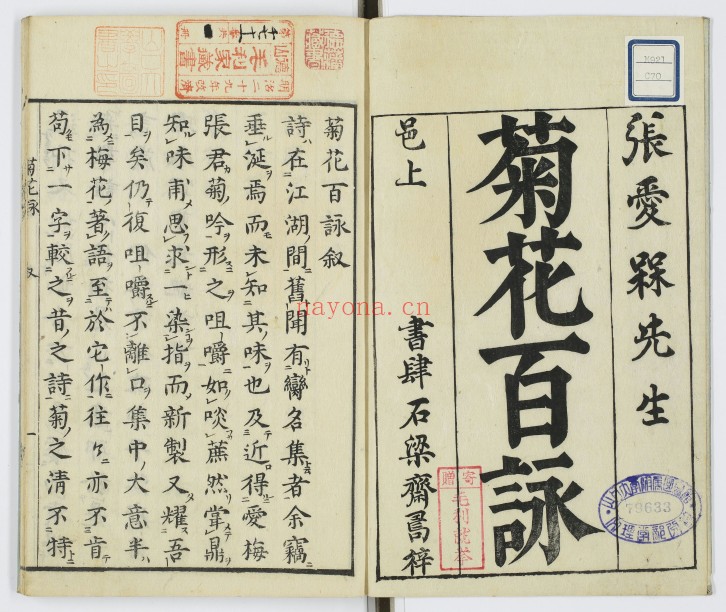 張愛槑先生
菊花百詠
邑上
書肆石梁齋鬲梓
寄贈
毛利
79633
N921
C70
菊花百詠叙
詩在江湖間舊聞有臠名集者余竊
垂涎焉而未知其味也及近得愛梅
張君菊吟形之咀嚼如啖蔗然掌鼎
知味甫思求一染指而新製又耀吾
目矣仍復咀嚼不離口集中大意半
為梅花著語至於它作往々亦不肯
苟下一字較之昔之詩菊之清不特
菊花詠
叙
一
明治二十九年改済
毛利家藏書
nayona.cn